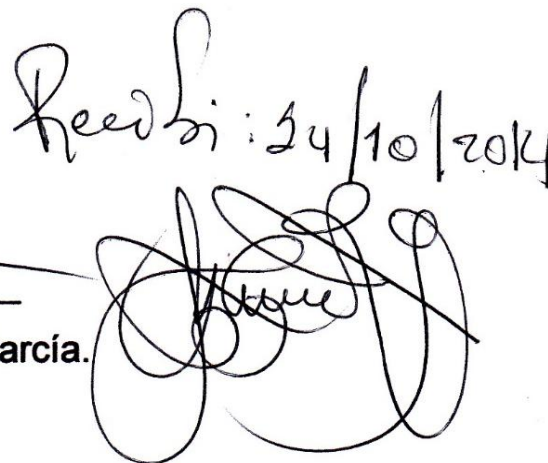 Recibi: 24/10/2014
arcía.